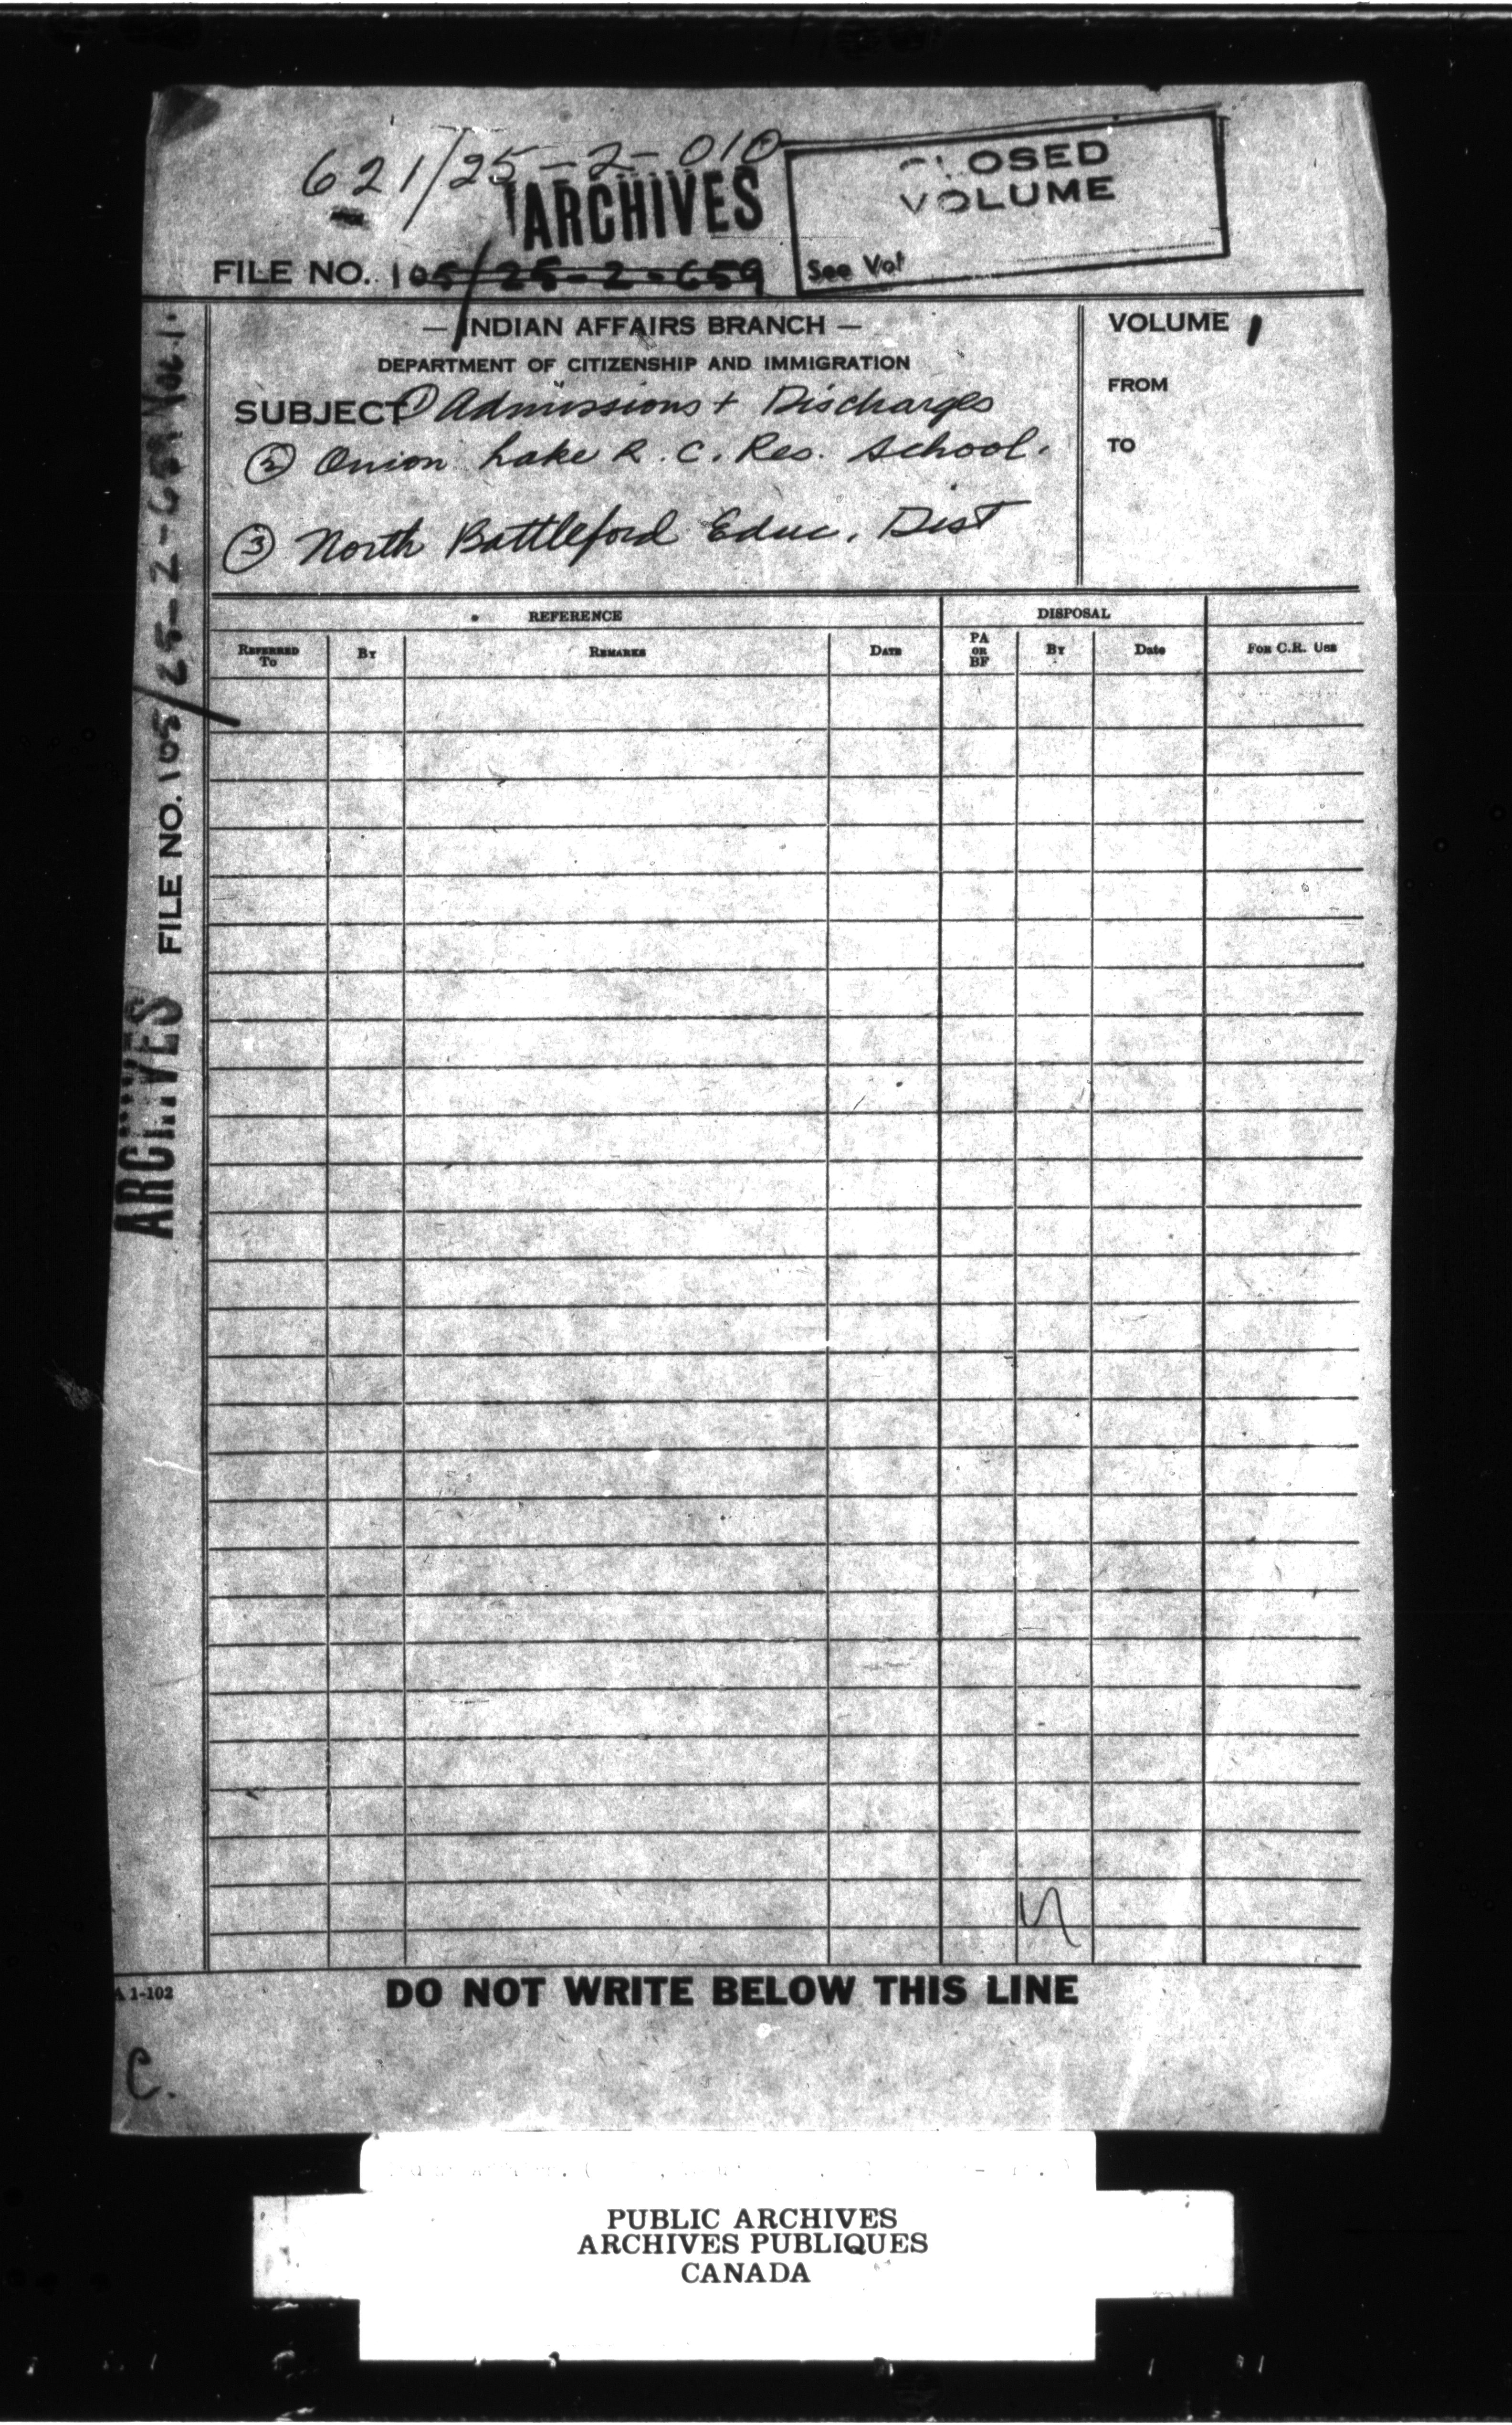 621/25-2-010
ARCHIVES
CLOSED
VOLUME
See Vol
FILE NO. 105/25-2-659
— INDIAN AFFAIRS BRANCH —
DEPARTMENT OF CITIZENSHIP AND IMMIGRATION
SUBJECT ① Admissions + Discharges
② Onion Lake R. C. Res. School.
③ North Battleford Educ. Dist
VOLUME 1
FROM
TO
FILE NO. 105/25-2-659 Vol. 1.
ARCHIVES
REFERENCE DISPOSAL
REFERRED TO BY REMARKS DATE PA OR BF BY Date FOR C.R. USE
A 1-102
DO NOT WRITE BELOW THIS LINE
C.
PUBLIC ARCHIVES
ARCHIVES PUBLIQUES
CANADA